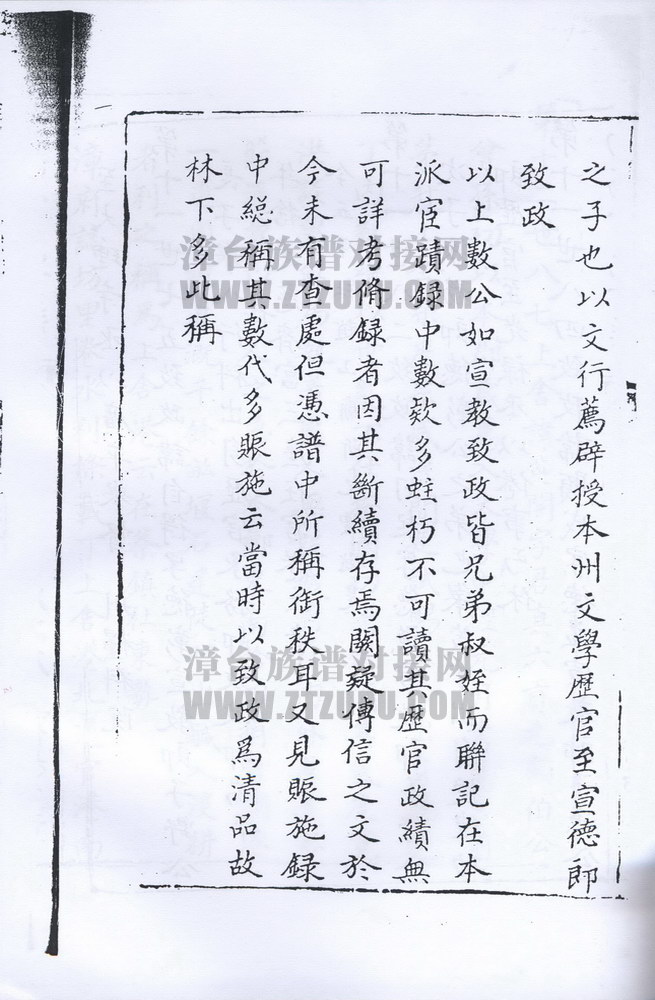 之子也以文行薦辟授本州文學歷官至宣德郎
致政
以上數公如宣教致政皆兄弟叔姪而聯記在本
派宦蹟録中數欵多蛀朽不可讀其歷官政績無
可詳考脩録者因其斷續存焉闕疑傳信之文於
今未有查處但憑譜中所稱銜秩耳又見賑施録
中総稱其數代多賑施云當時以致政爲清品故
林下多此稱
漳台族谱对接网
WWW.ZTZUPU.COM
漳台族谱对接网
WWW.ZTZUPU.COM